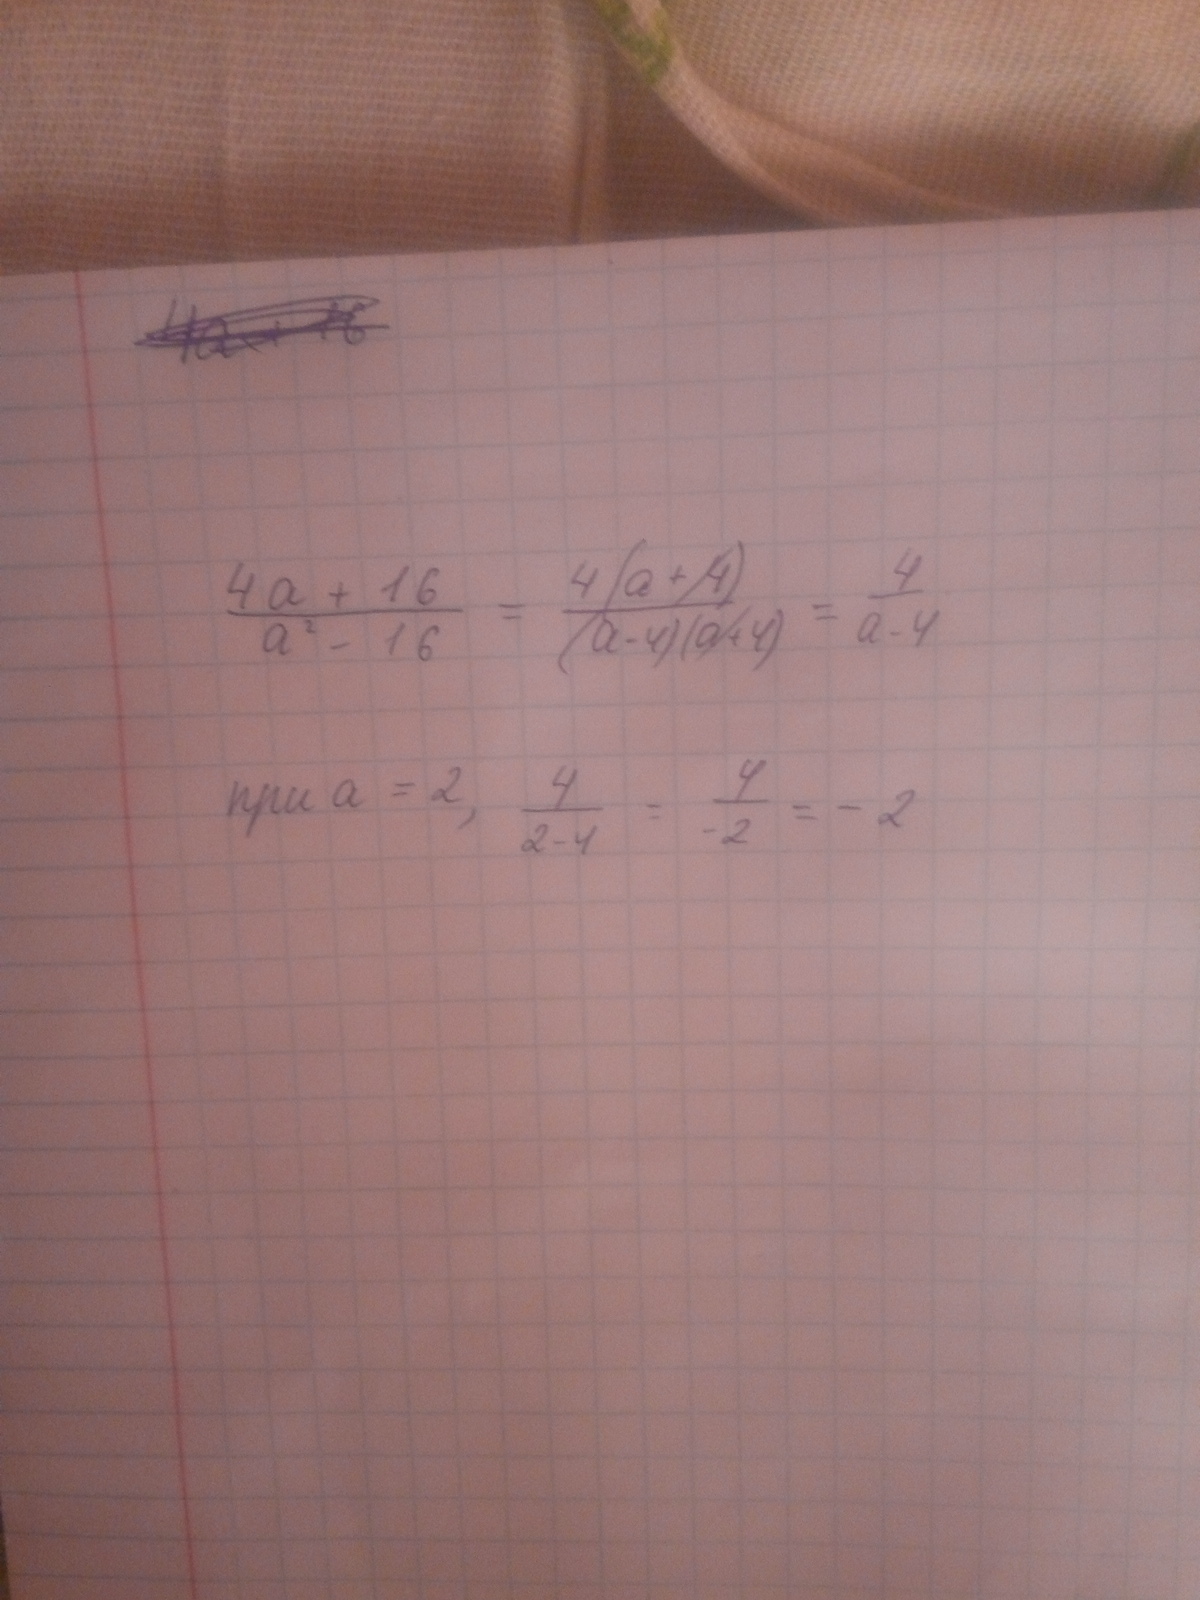 4a + 16
4a + 16 / a² - 16 = 4(a+4) / (a-4)(a+4) = 4 / a-4
при a = 2, 4 / 2-4 = 4 / -2 = - 2